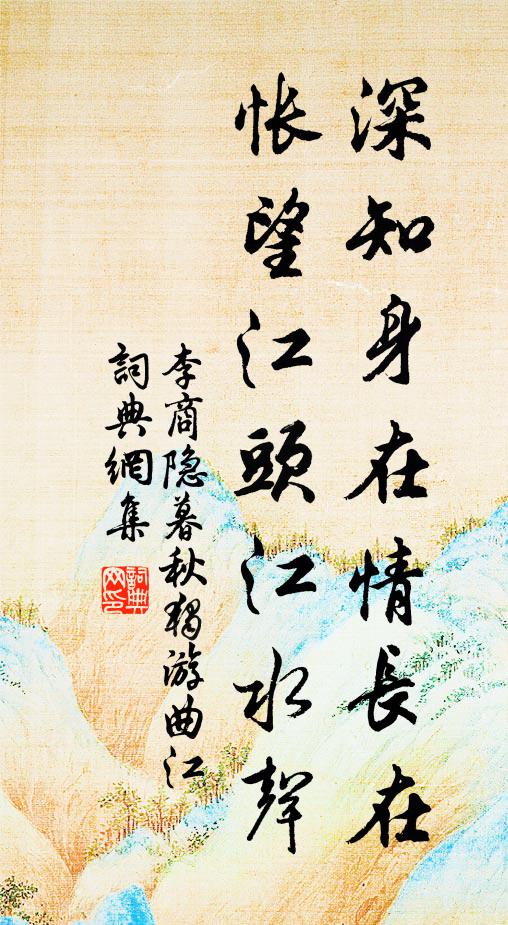 深知身在情長在
悵望江頭江水聲
李商隐暮秋獨游曲江
詞典網集
詞典
网印